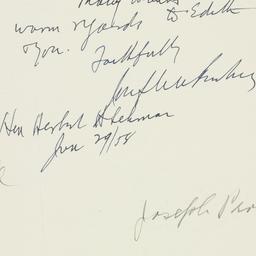 Many thanks
warm regards to Edith
& you.
Faithfully
Hon Herbert H Lehman
Jan 29/58
Joseph